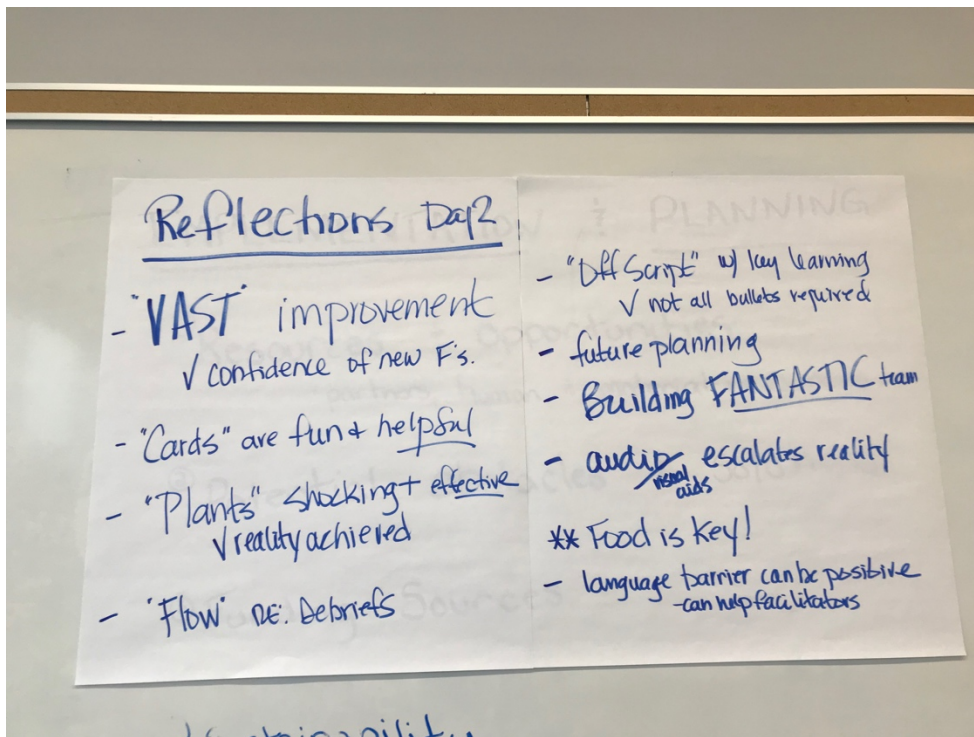 Reflections Day 2
- "VAST" improvement
√ confidence of new F's.
- "Cards" are fun + helpful
- "Plants" shocking + effective
√ reality achieved
- "Flow" RE: Debriefs
- "Off Script" w/ key learning
√ not all bullets required
- future planning
- Building FANTASTIC team
- audio/visual aids escalates reality
** Food is key!
- language barrier can be positive
- can help facilitators
IMPLEMENTATION & PLANNING
Resources Opportunities
Sources
Sustainability